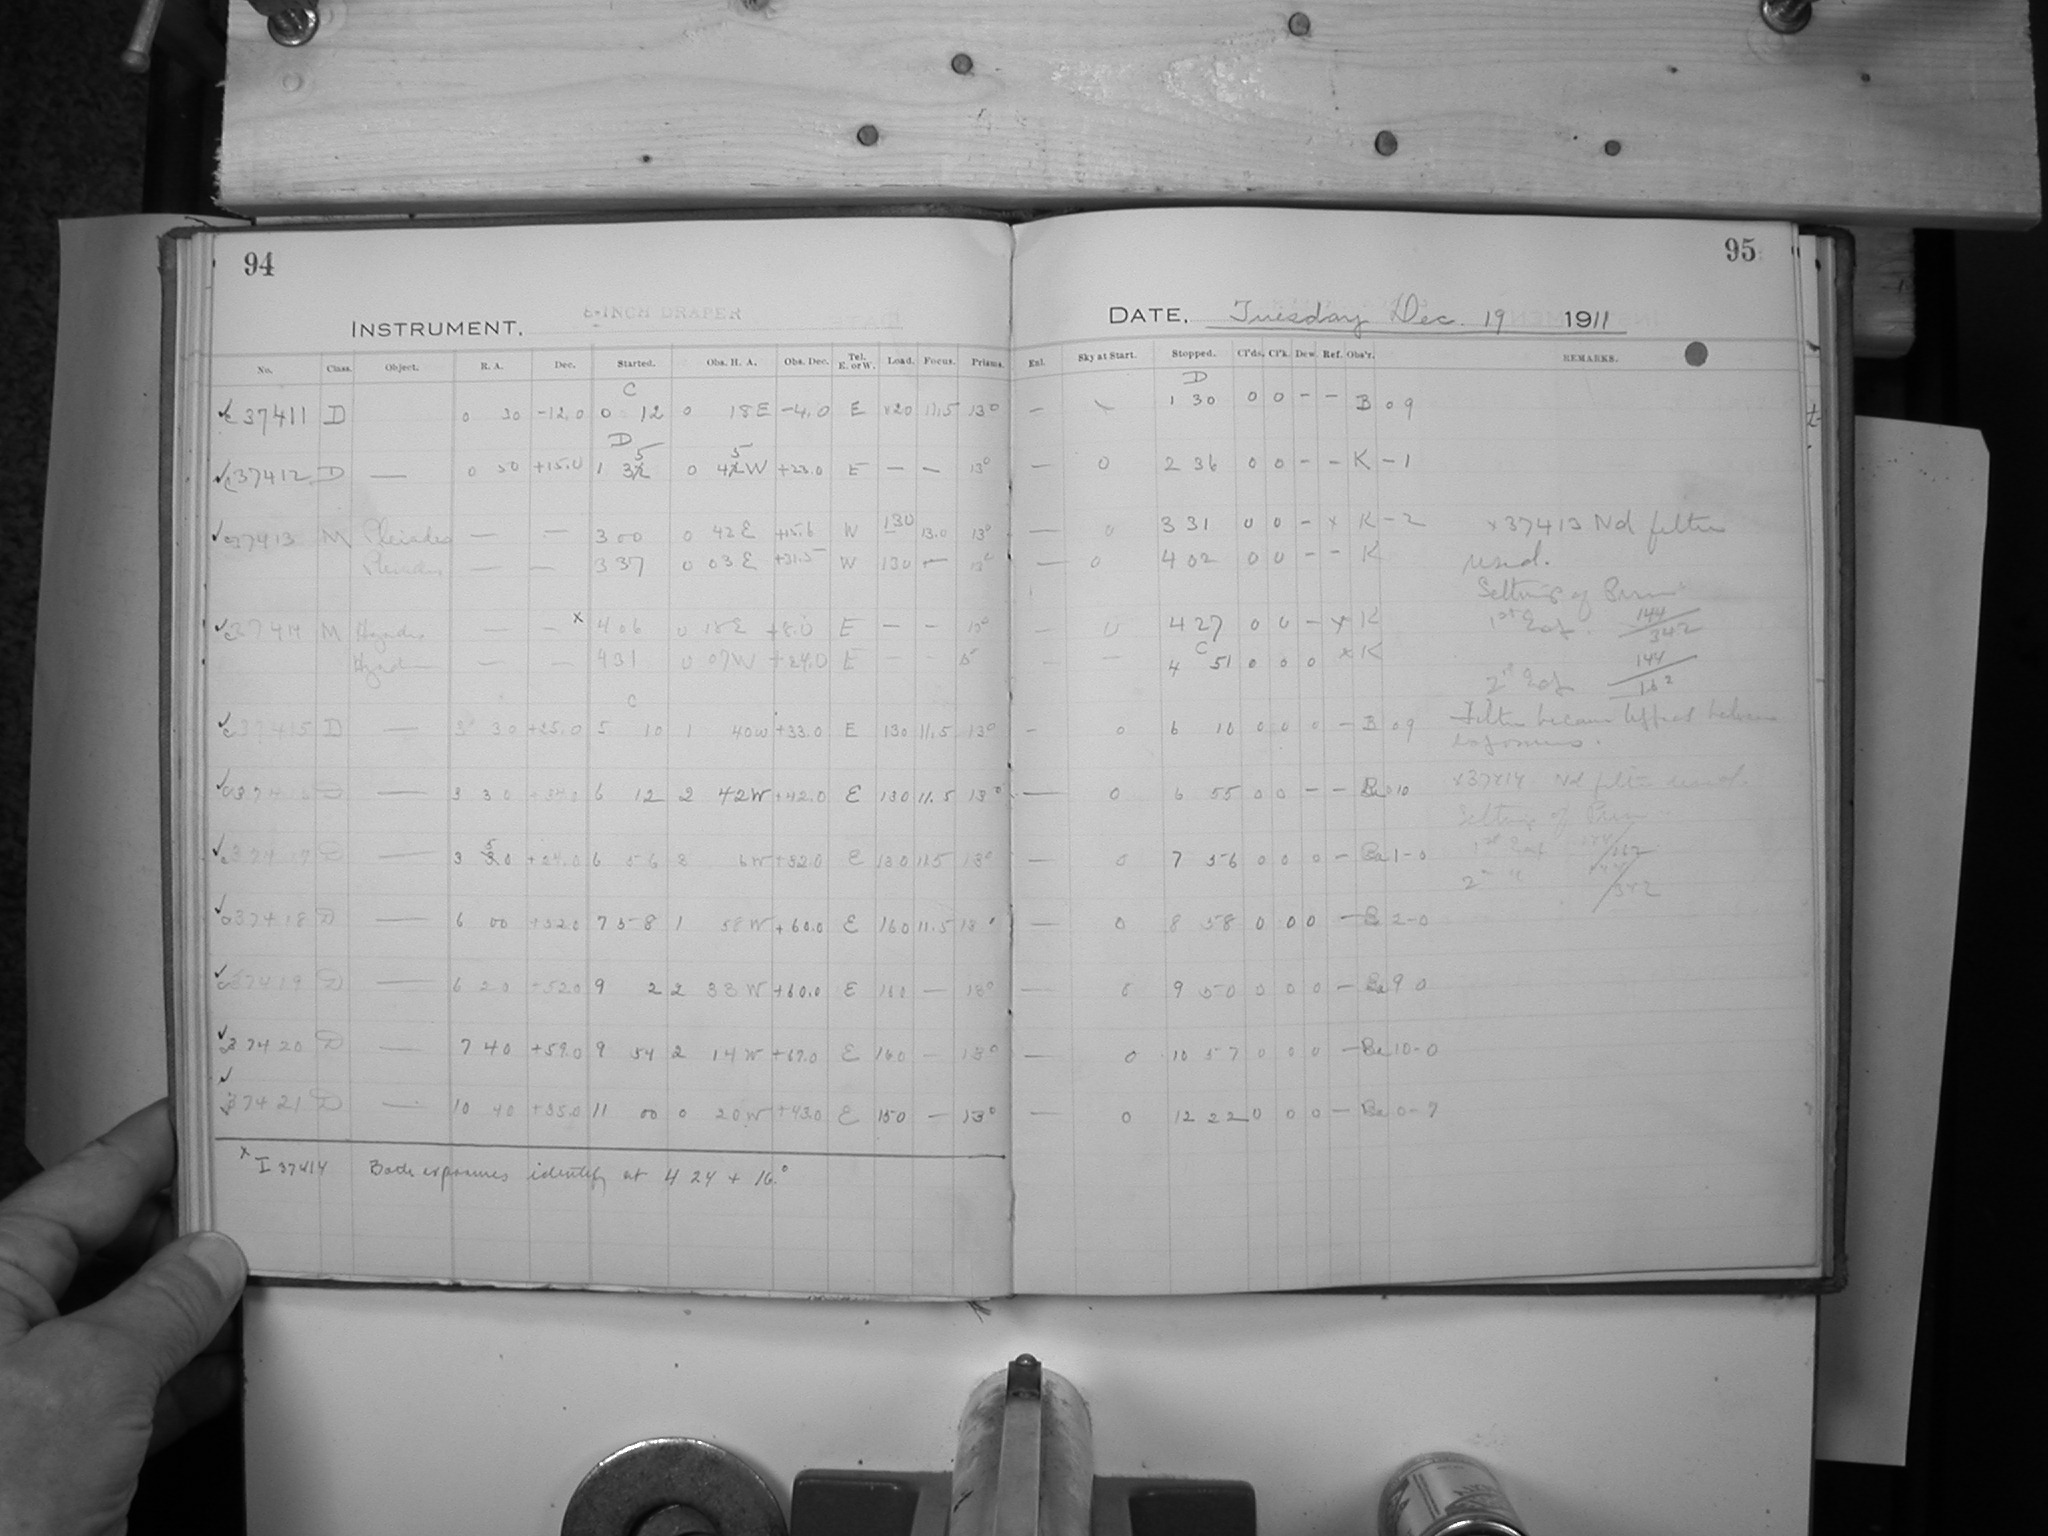 94
95
INSTRUMENT. 8-INCH DRAPER
DATE. Tuesday Dec. 19 1911
No. Class. Object. R. A. Dec. Started. Obs. H. A. Obs. Dec. Tel. E. or W. Load. Focus. Prisms. Enl. Sky at Start. Stopped. Cl'ds. Cl'k. Dew. Ref. Obs'r. REMARKS.
C D
37411 D 0 30 -12.0 0 12 0 18 E -4.0 E 11.5 13° — 1 30 0 0 - - B 09
D 5 5
37412 D — 0 50 +15.0 1 32 0 42 W +23.0 E — — 13° — 0 2 36 0 0 - - K - 1
37413 M Pleiades — — 3 00 0 42 E +15.6 W 130 13.0 13° — 0 3 31 0 0 - x K - 2 x 37413 Nd filter
Pleiades — — 3 37 0 03 E +31.5 W 130 — 13° — 0 4 02 0 0 - - K used.
Setting of Prism
37414 M Hyades — — x 4 06 0 18 E +8.0 E — — 13° — 0 4 27 0 0 - x K 1st Exp. 144/342
C
Hyades — — 4 31 0 07 W +24.0 E — — — — 4 51 0 0 0 x K 2d Exp 144/162
C
37415 D — 3 30 +25.0 5 10 1 40 W +33.0 E 130 11.5 13° - 0 6 10 0 0 0 - B 09 Filter became between
exposures.
D — 3 30 +34.0 6 12 2 42 W +42.0 E 130 11.5 13° — 0 6 55 0 0 - - Ba 0 10 x 37414 Nd filter used.
Setting of Prism
5
37417 D — 3 30 +24.0 6 56 2 6 W +32.0 E 130 11.5 13° — 0 7 56 0 0 0 - Ba 1-0 1st Exp
2d " /342
37418 D — 6 00 +52.0 7 58 1 58 W +60.0 E 160 11.5 13° — 0 8 58 0 0 0 - Ba 2-0
37419 D — 6 20 +52.0 9 2 2 33 W +60.0 E 160 — 13° — 0 9 50 0 0 0 - Ba 9 0
37420 D — 7 40 +59.0 9 54 2 14 W +67.0 E 160 — 13° — 0 10 57 0 0 0 - Ba 10-0
37421 D — 10 40 +35.0 11 00 0 20 W +43.0 E 150 — 13° — 0 12 22 0 0 0 - Ba 0-7
x I 37414 Both exposures identify at 4 24 + 16.°